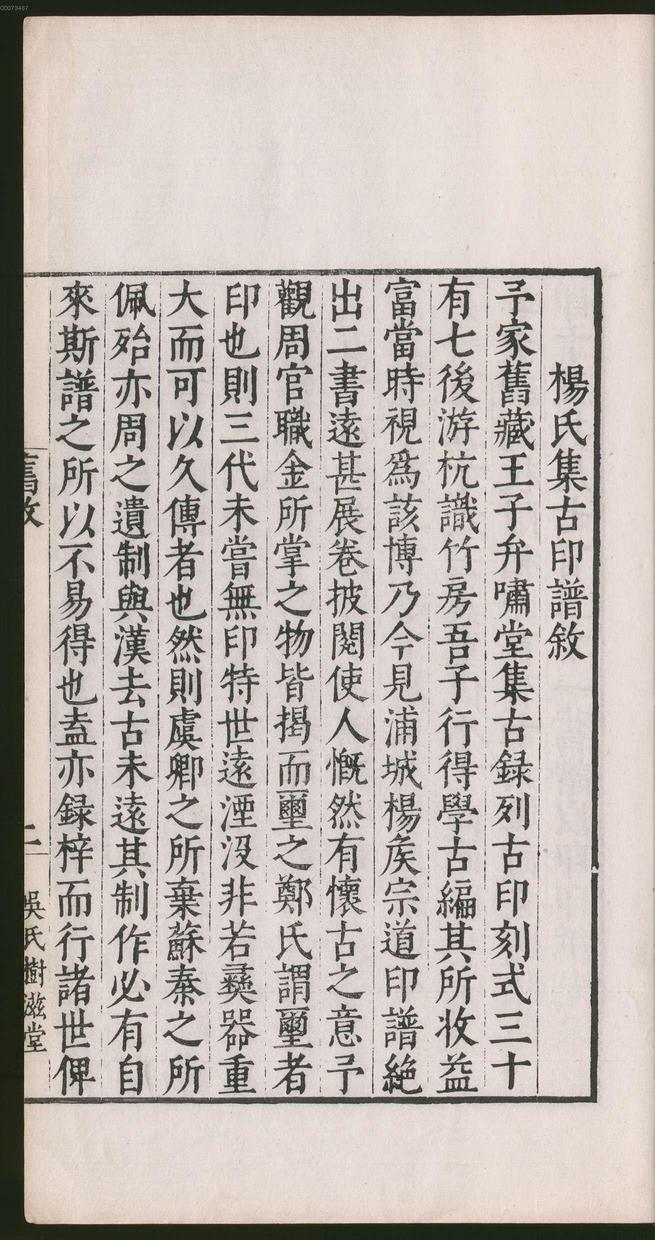 00073467
楊氏集古印譜敘
予家舊藏王子弁嘯堂集古録列古印刻式三十
有七後游杭識竹房吾子行得學古編其所收益
富當時視爲該博乃今見浦城楊矦宗道印譜絶
出二書遠甚展卷披閱使人慨然有懷古之意予
觀周官職金所掌之物皆揭而璽之鄭氏謂璽者
印也則三代未嘗無印特世遠湮没非若彛器重
大而可以久傳者也然則虞卿之所棄蘇秦之所
佩殆亦周之遺制與漢去古未遠其制作必有自
來斯譜之所以不易得也盍亦録梓而行諸世俾
舊敘 二 吳氏樹滋堂